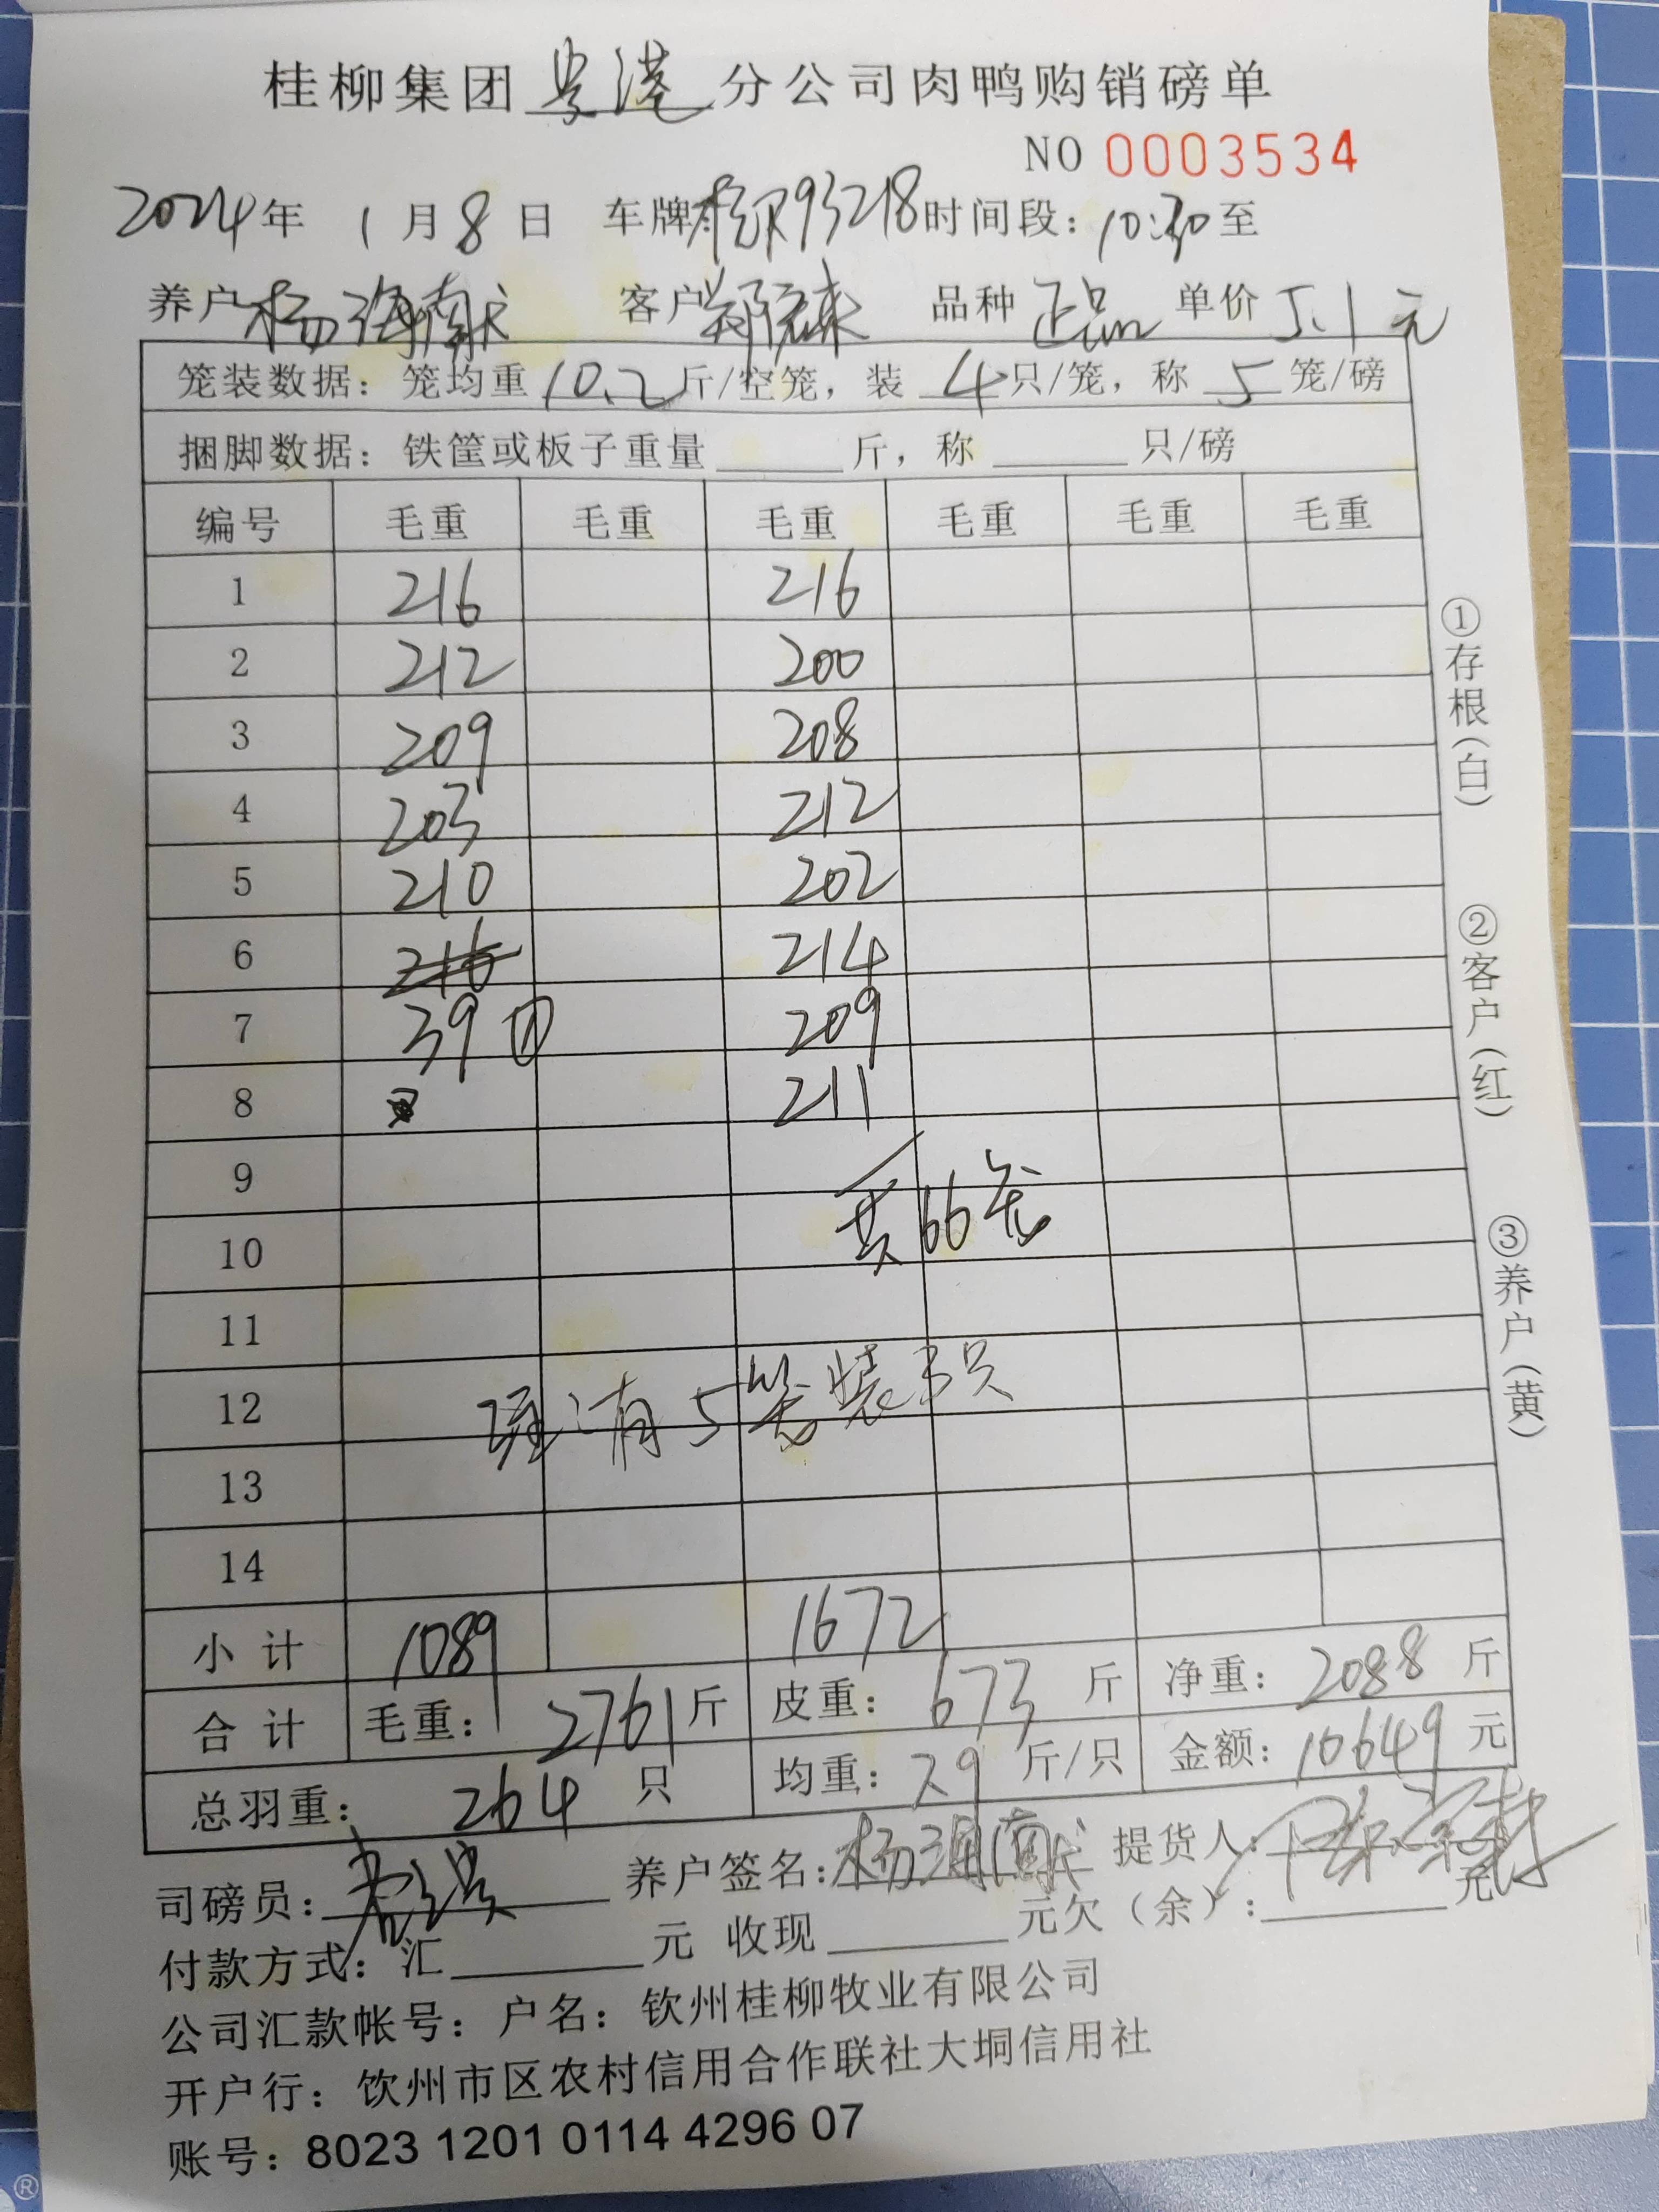 桂柳集团贵港分公司肉鸭购销磅单
NO 0003534
2024年 1月8日 车牌桂R93218时间段：10:30至
养户杨海南 客户 品种 正品 单价 5.1元
笼装数据：笼均重10.2斤/空笼，装4只/笼，称5笼/磅
捆脚数据：铁筐或板子重量 斤，称 只/磅
编号 毛重 毛重 毛重 毛重 毛重 毛重
1 216 216
2 212 200
3 209 208
4 203 212
5 210 202
6 216 214
7 39 ① 209
8 211
9
共66笼
10
11
12 有5笼装 只
13
14
小计 1089 1672
合计 毛重：2761斤 皮重：673斤 净重：2088斤
总羽重：264只 均重：7.9斤/只 金额：10649元
司磅员： 养户签名：杨海南 提货人：
付款方式：汇 元 收现 元欠（余）： 元
公司汇款帐号：户名：钦州桂柳牧业有限公司
开户行：饮州市区农村信用合作联社大垌信用社
账号：8023 1201 0114 4296 07
①存根(白)
②客户(红)
③养户(黄)
®